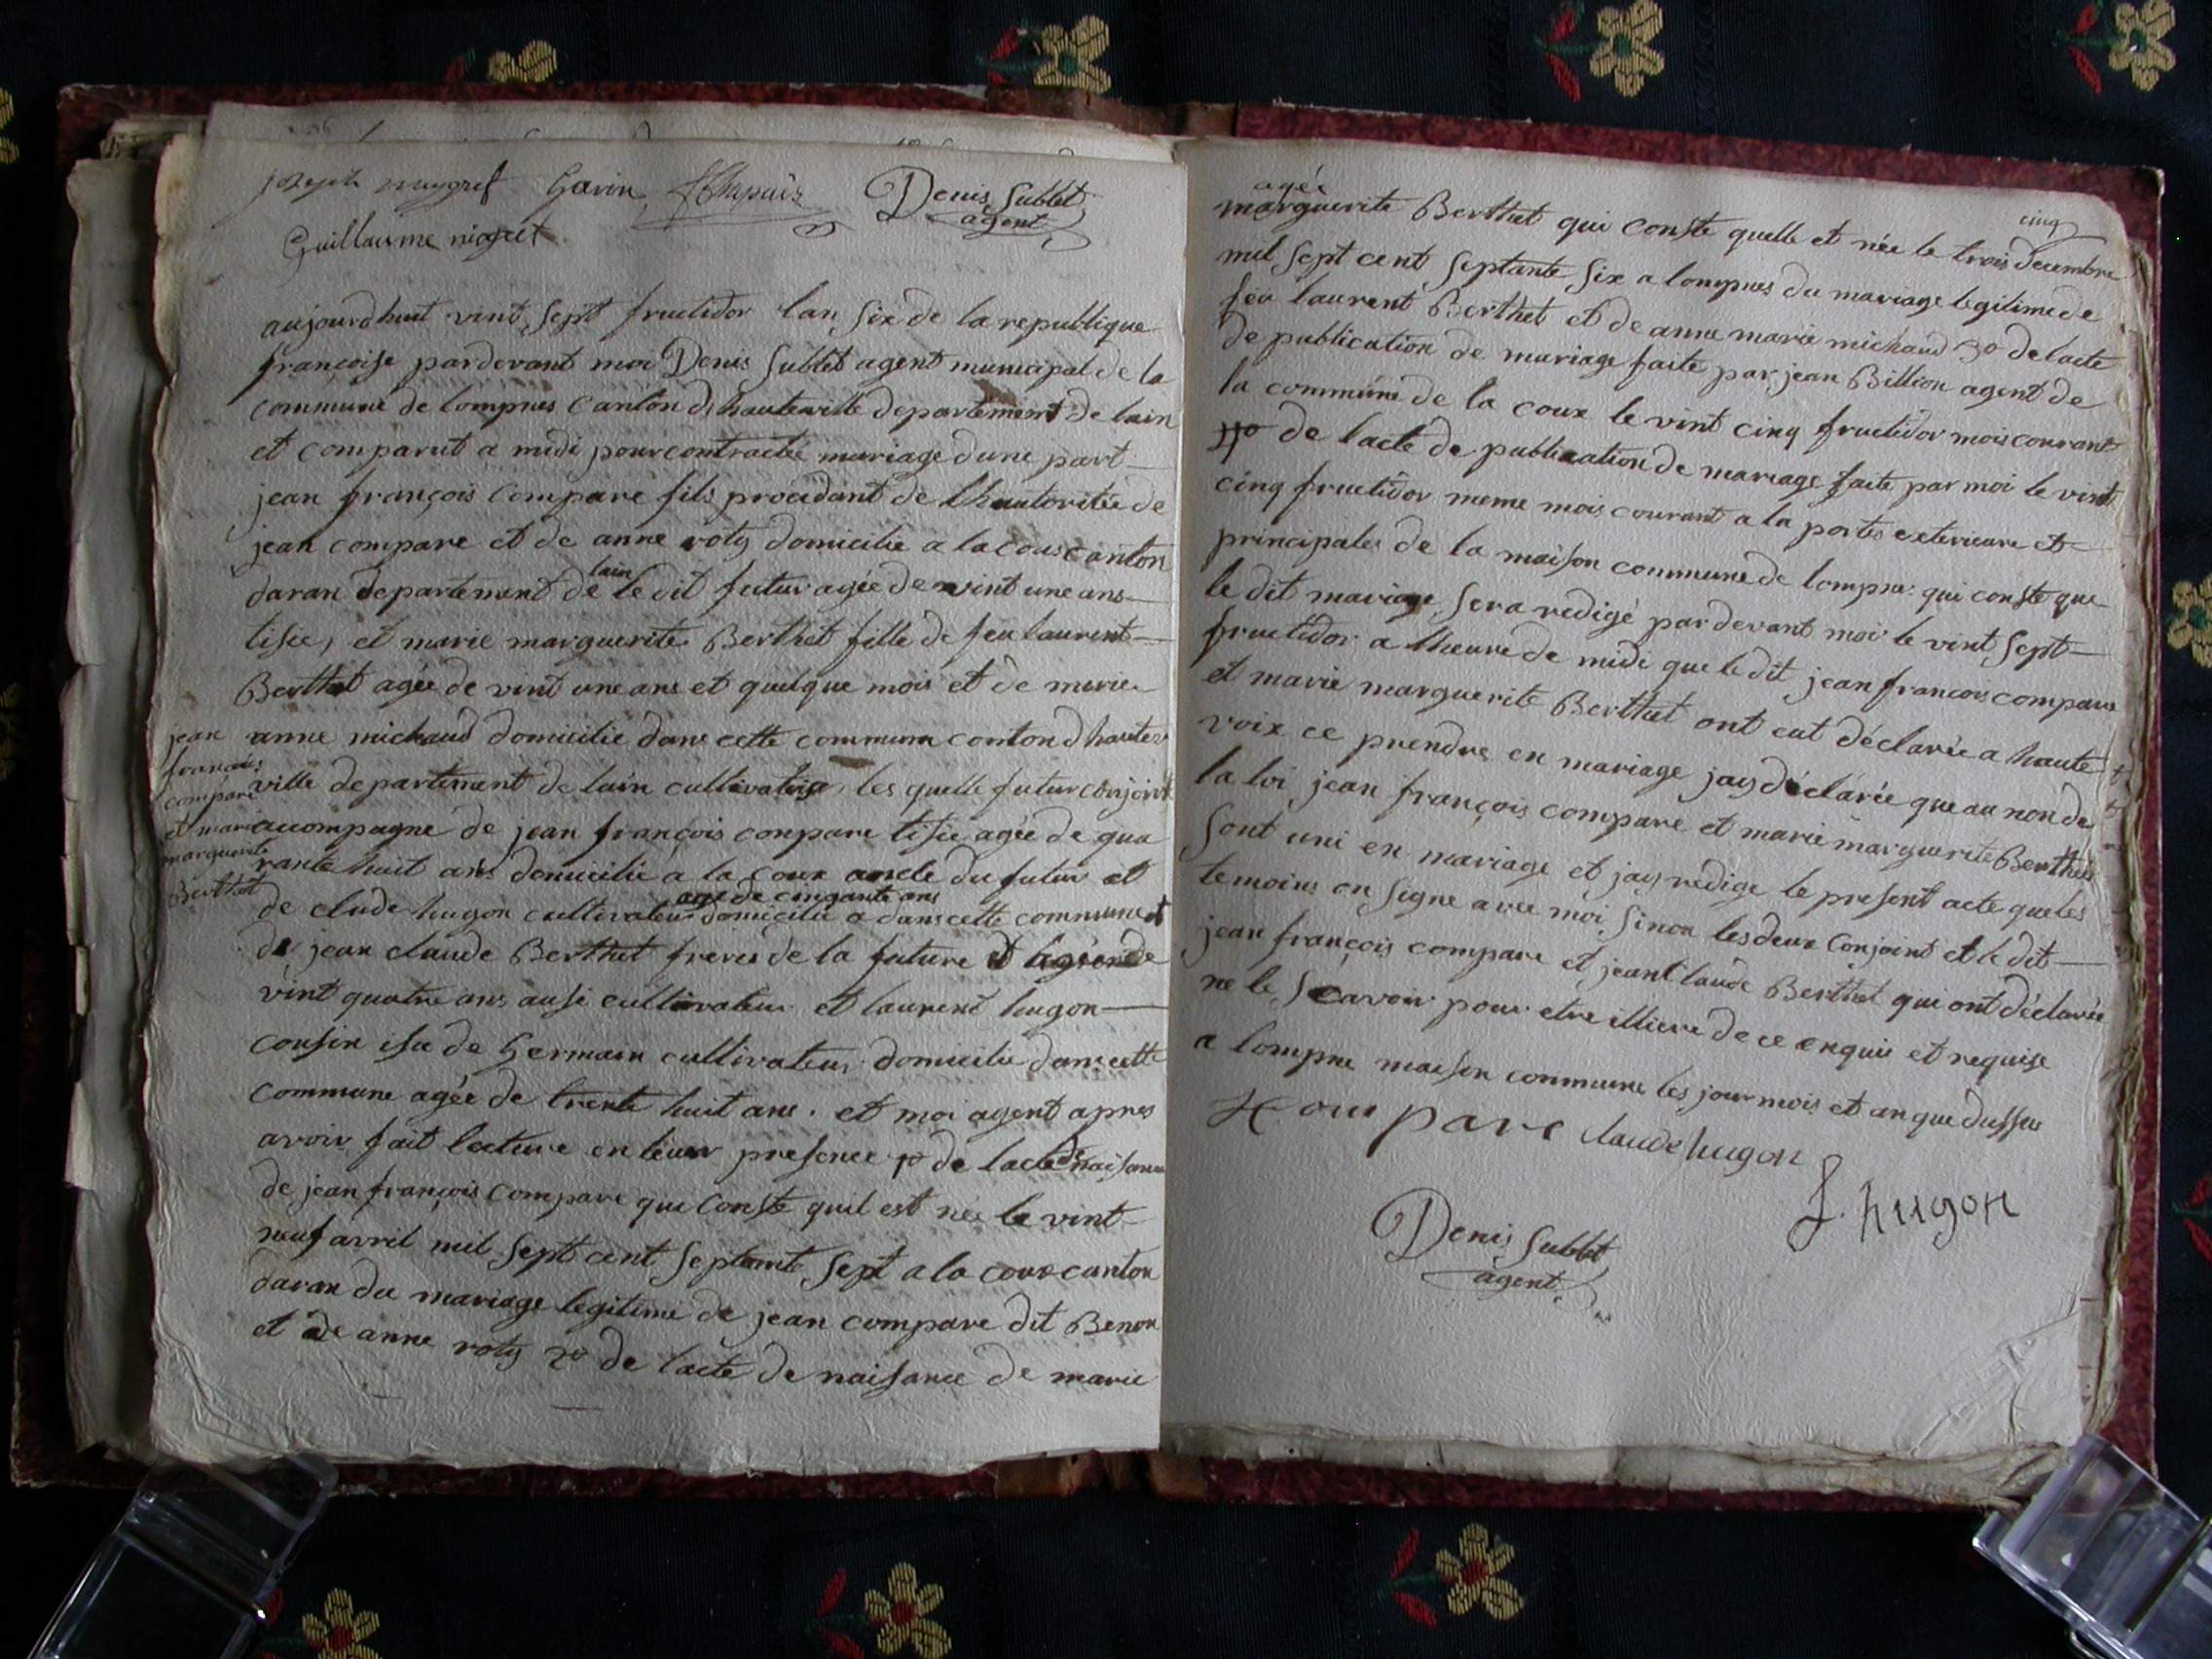 joseph Gavin Chapuis Denis Sublet
agent
Guillaume
aujourdhuit vint sept fructidor lan six de la republique
francoise pardevant moi Denis Sublet agent municipal de la
commune de lompnes canton dhauteville departement de lain
et comparut a midi pour contractée mariage dune part
jean françois compare fils procedant de lhautoritée de
jean compare et de anne roty domicilie a la coux canton
daran departement de lain le dit futur agée de vint une ans
tisié, et marie marguerite Berthet fille de feu laurent
Berthet agée de vint une ans et quelque mois et de marie
anne michaud domicilie dans cette commune canton dhaute
ville departement de lain cultivatrise, les quelle futur conjoint
jean
françois
compare
et marie
marguerite
Berthet
acompagne de jean françois compare tisié agée de qua
rante huit ans domicilié a la coux oncle du futur et
de clude hugon cultivateur age de cinqante ans domicilie a dans cette commune et
de jean claude Berthet freres de la future et agée de
vint quatre ans ausi cultivateur et laurent hugon
cousin isu de Germain cultivateur domicilie dans cette
commune agée de trente huit ans. et moi agent apres
avoir fait lecture en leur presence 1o de lacte de naisance
de jean françois compare qui conste quil est née le vint
neuf avril mil sept cent septante sept a la coux canton
daran du mariage legitime de jean compare dit Benon
et de anne roty 2o de lacte de naisance de marie
agée
cinq
marguerite Berthet qui conste quelle et née le trois decembre
mil sept cent septante six a lompnes du mariage legitime de
feu laurent Berthet et de anne marie michaud 3o de lacte
de publication de mariage faite par jean Billion agent de
la commune de la coux le vint cinq fructidor mois courant
4o de lacte de publication de mariage faite par moi le vint
cinq fructidor meme mois courant a la portes exterieure et
principales de la maison commune de lompne qui conste que
le dit mariage sera redigé par devant moi le vint sept
fructidor a lheure de midi que le dit jean francois compare
et marie marguerite Berthet ont eut déclarée a haute
voix ce prendre en mariage jay déclarée que au non de
la loi jean françois compare et marie marguerite Berthet
sont uni en mariage et jay redige le present acte que les
temoins on signe avec moi sinon les deux conjoint et le dit
jean françois compare et jean claude Berthet qui ont déclarée
ne le scavoir pour etre illiere de ce enquis et requise
a lompne maison commune les jour mois et an que dussu
compare claude hugon
L. hugon
Denis Sublet
agent